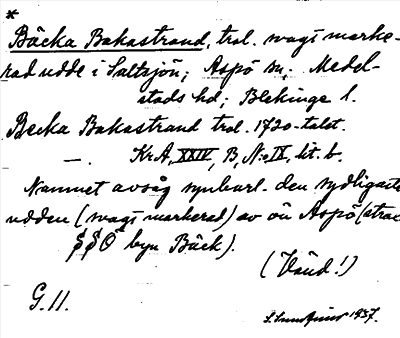 *
Bäcka Bakastrand, trol. svagt marke-
rad udde i Saltsjön; Aspö sn; Medel-
stads hd; Blekinge l.
Becka Bakastrand trol. 1720-talet.
—. KrA, XXIV, B, N:o IX, lit. b.
Namnet avsåg synbarl. den sydligaste
udden (svagt markerad) av ön Aspö (strax
SSO byn Bäck).
(Vänd!)
G. 11.
1937.